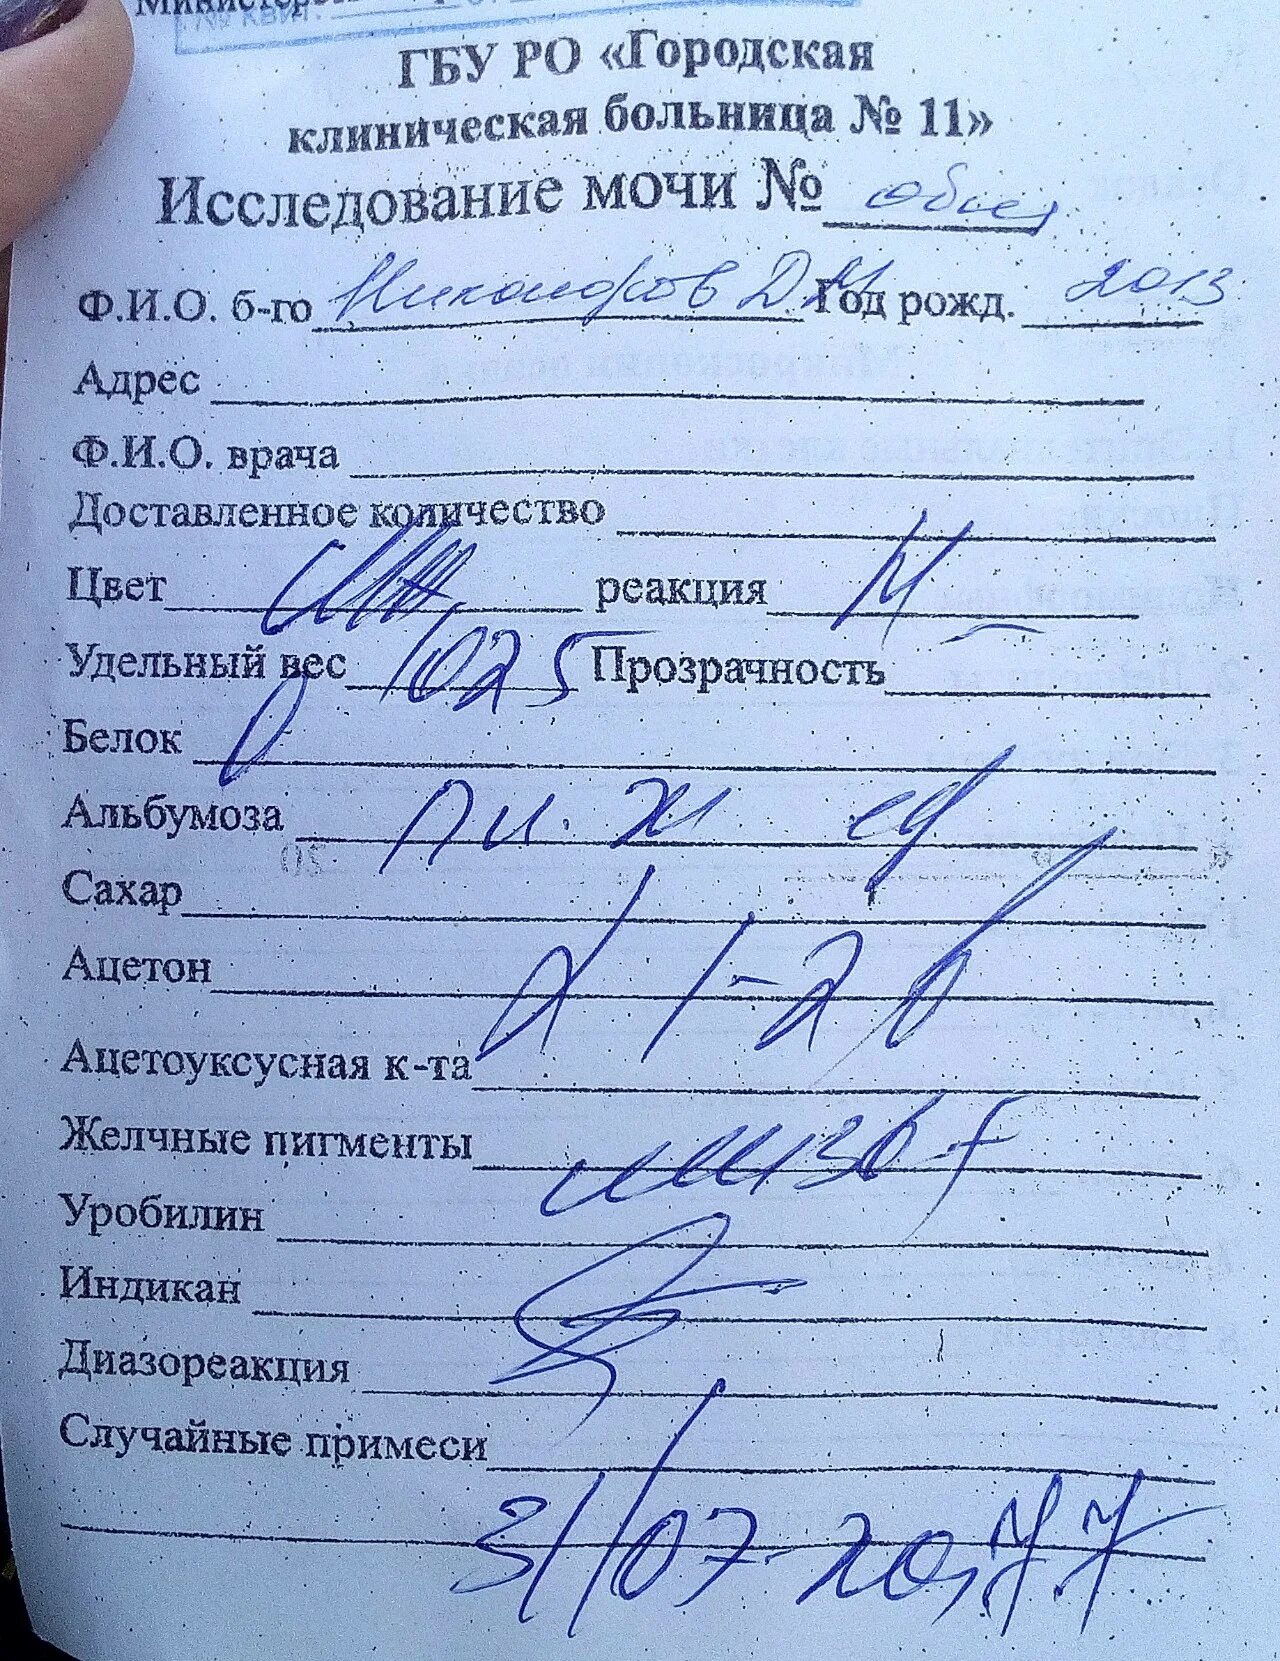 № КВИТ.
ГБУ РО «Городская
клиническая больница № 11»
Исследование мочи №
Ф.И.О. б-го Никаноров Д Год рожд. 2013
Адрес
Ф.И.О. врача
Доставленное количество
Цвет реакция
Удельный вес 1025 Прозрачность
Белок
Альбумоза
Сахар
Ацетон
1-2
Ацетоуксусная к-та
Желчные пигменты
Уробилин
Индикан
Диазореакция
Случайные примеси
31/07-2017